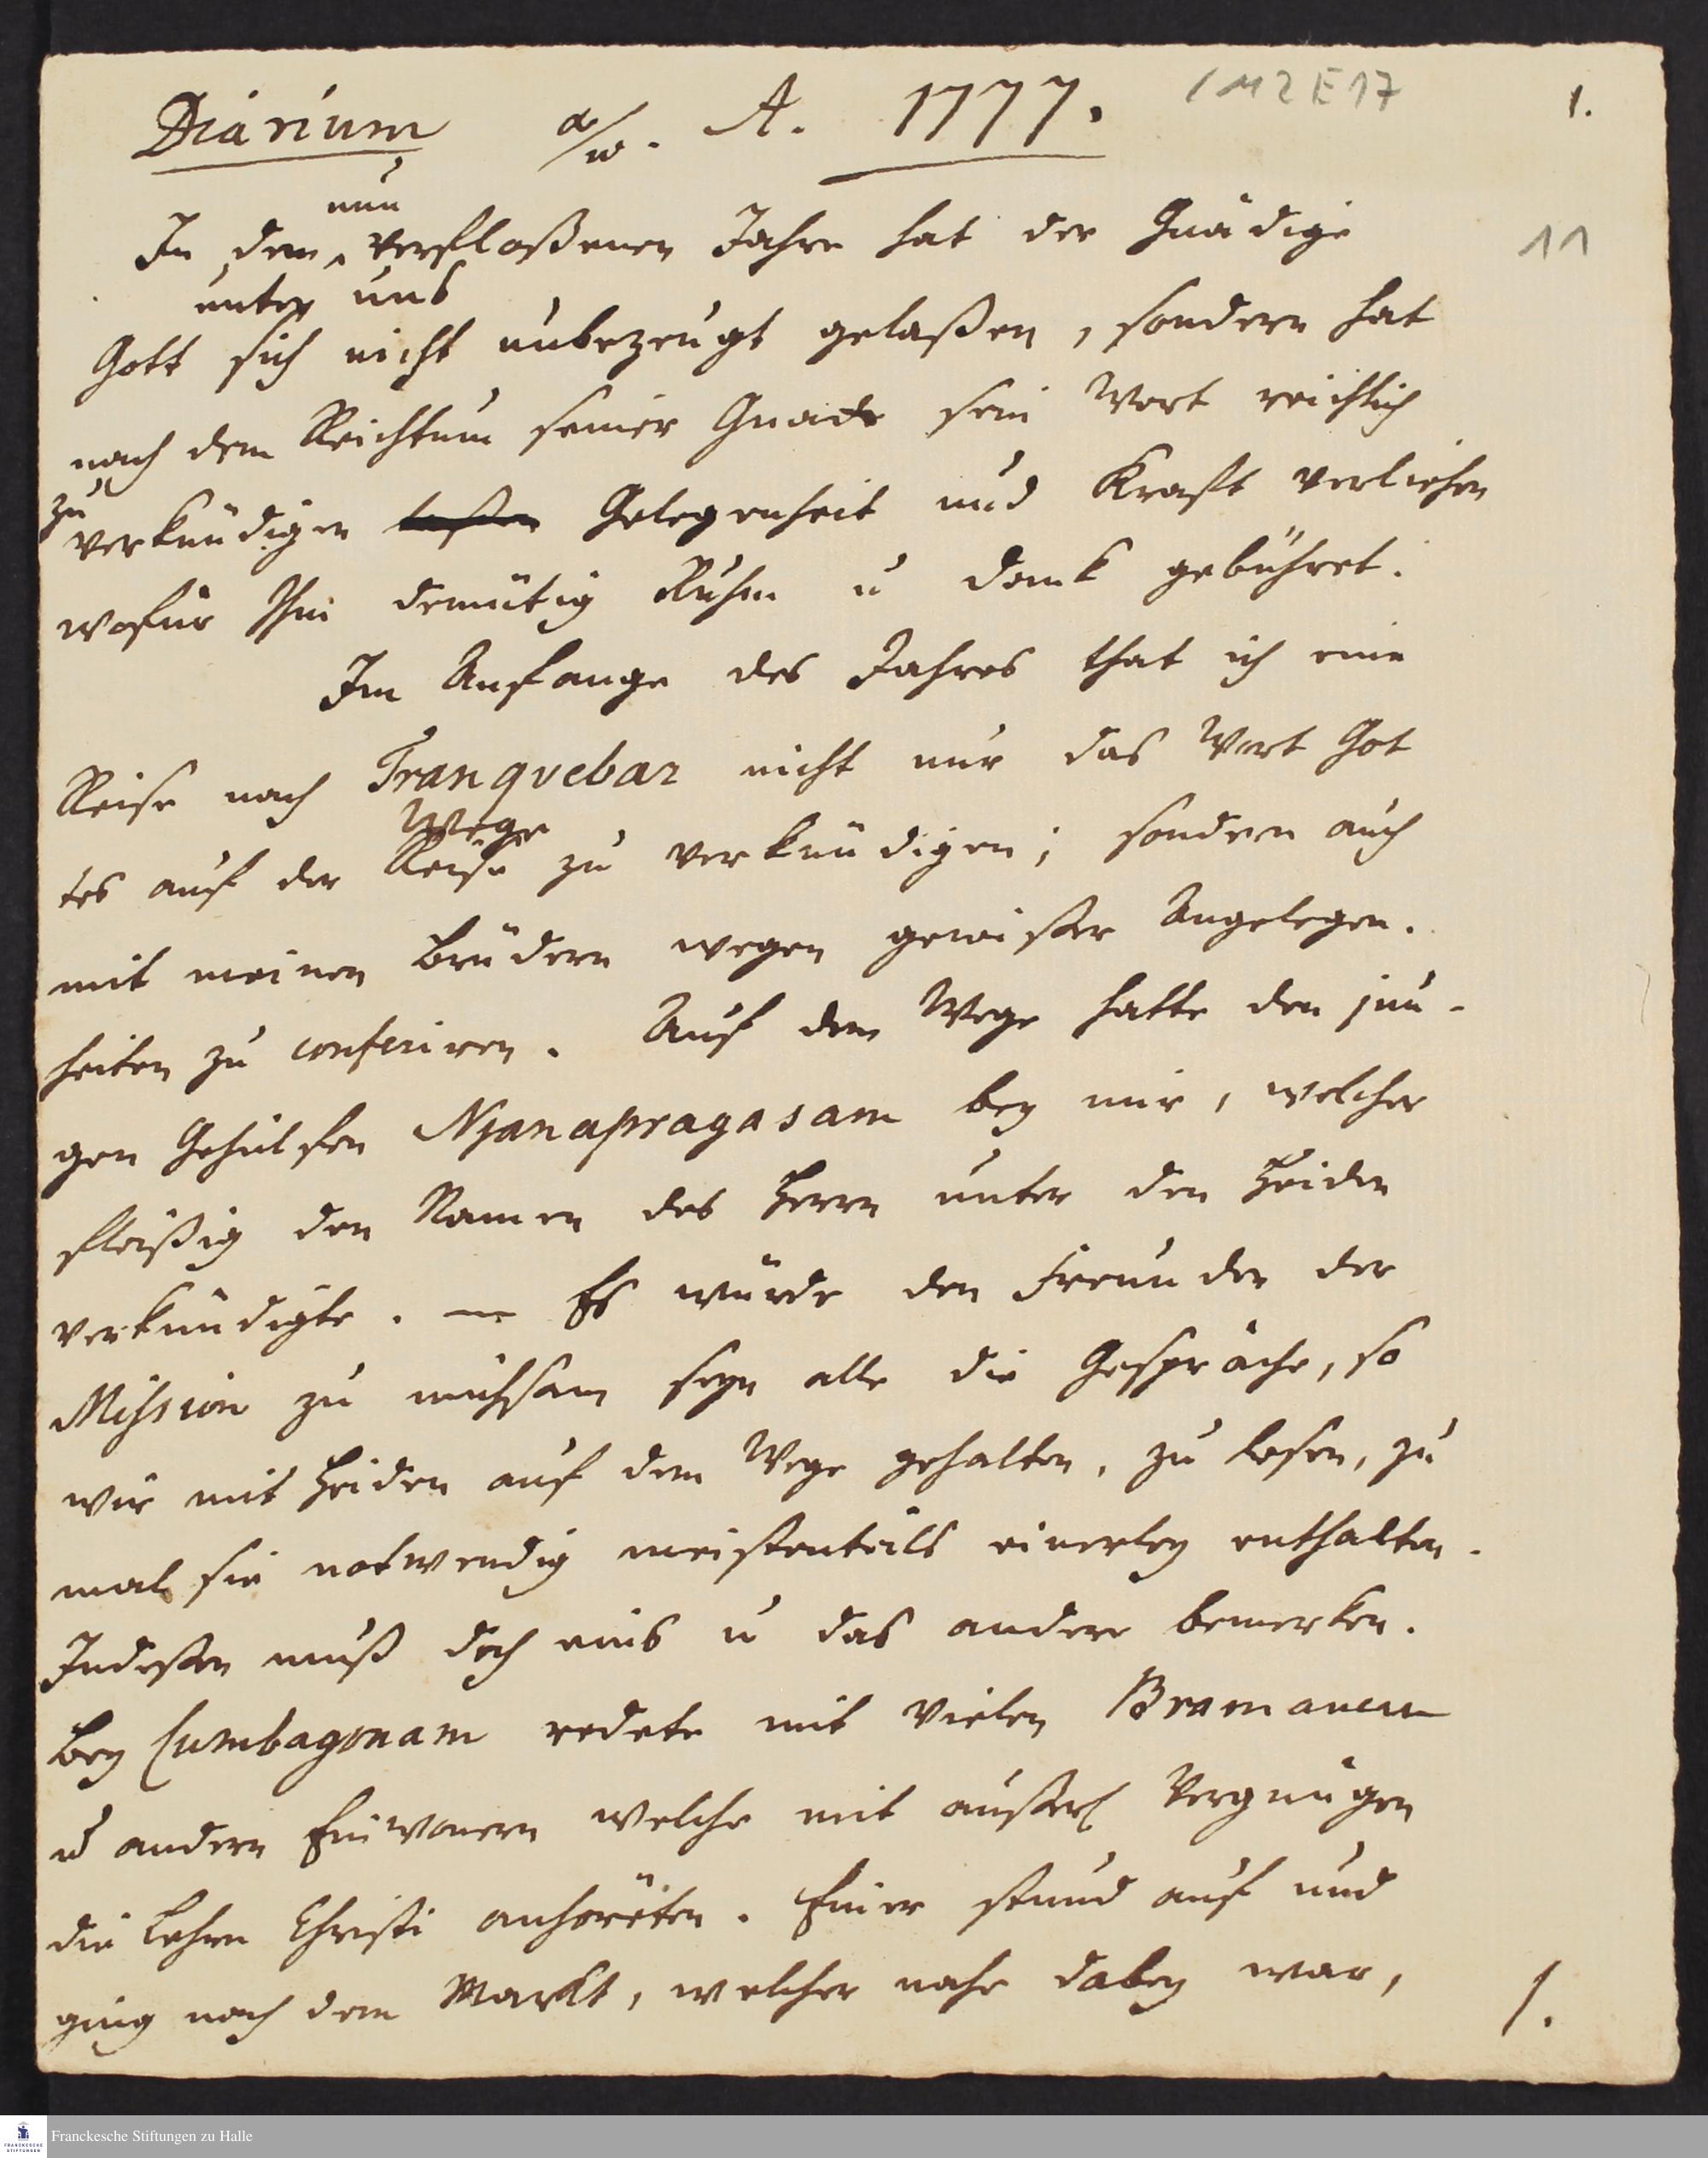 Diarium α/ω. A. 1777.
1 M 2 E 17
1.
11
nun
In dem verfloßenen Jahre hat der Gnädige
unter uns
Gott sich nicht unbezeugt gelaßen, sondern hat
nach dem Reichtum seiner Gnade sein Wort reichlich
zu
verkündigen laßen Gelegenheit und Kraft verliehen
wofür Ihm demütig Ruhm u Dank gebühret.
Im Anfange des Jahres that ich eine
Reise nach Tranqvebar nicht nur das Wort Got
Wege
tes auf der Reise zu verkündigen; sondern auch
mit meinen Brüdern wegen gewißer Angelegen-
heiten zu conferiren. Auf dem Wege hatte den jun-
gen Gehülfen Njanapragasam bey mir, welcher
fleißig den Namen des Herrn unter den Heiden
verkündigte. — Es würde den Freunden der
Mission zu mühsam seyn alle die Gespräche, so
wir mit Heiden auf dem Wege gehalten, zu lesen, zu
mal sie notwendig meistenteils einerley enthalten.
Indeßen muß doch eins u das andere bemerken.
Bey Cumbagonam redete mit vielen Bramanern
u andern Einwonern welche mit äußerl Vergnügen
die Lehre Christi anhöreten. Einer stund auf und
ging nach dem Markt, welcher nahe dabey war,
1.
Franckesche Stiftungen zu Halle
FRANCKESCHE
STIFTUNGEN